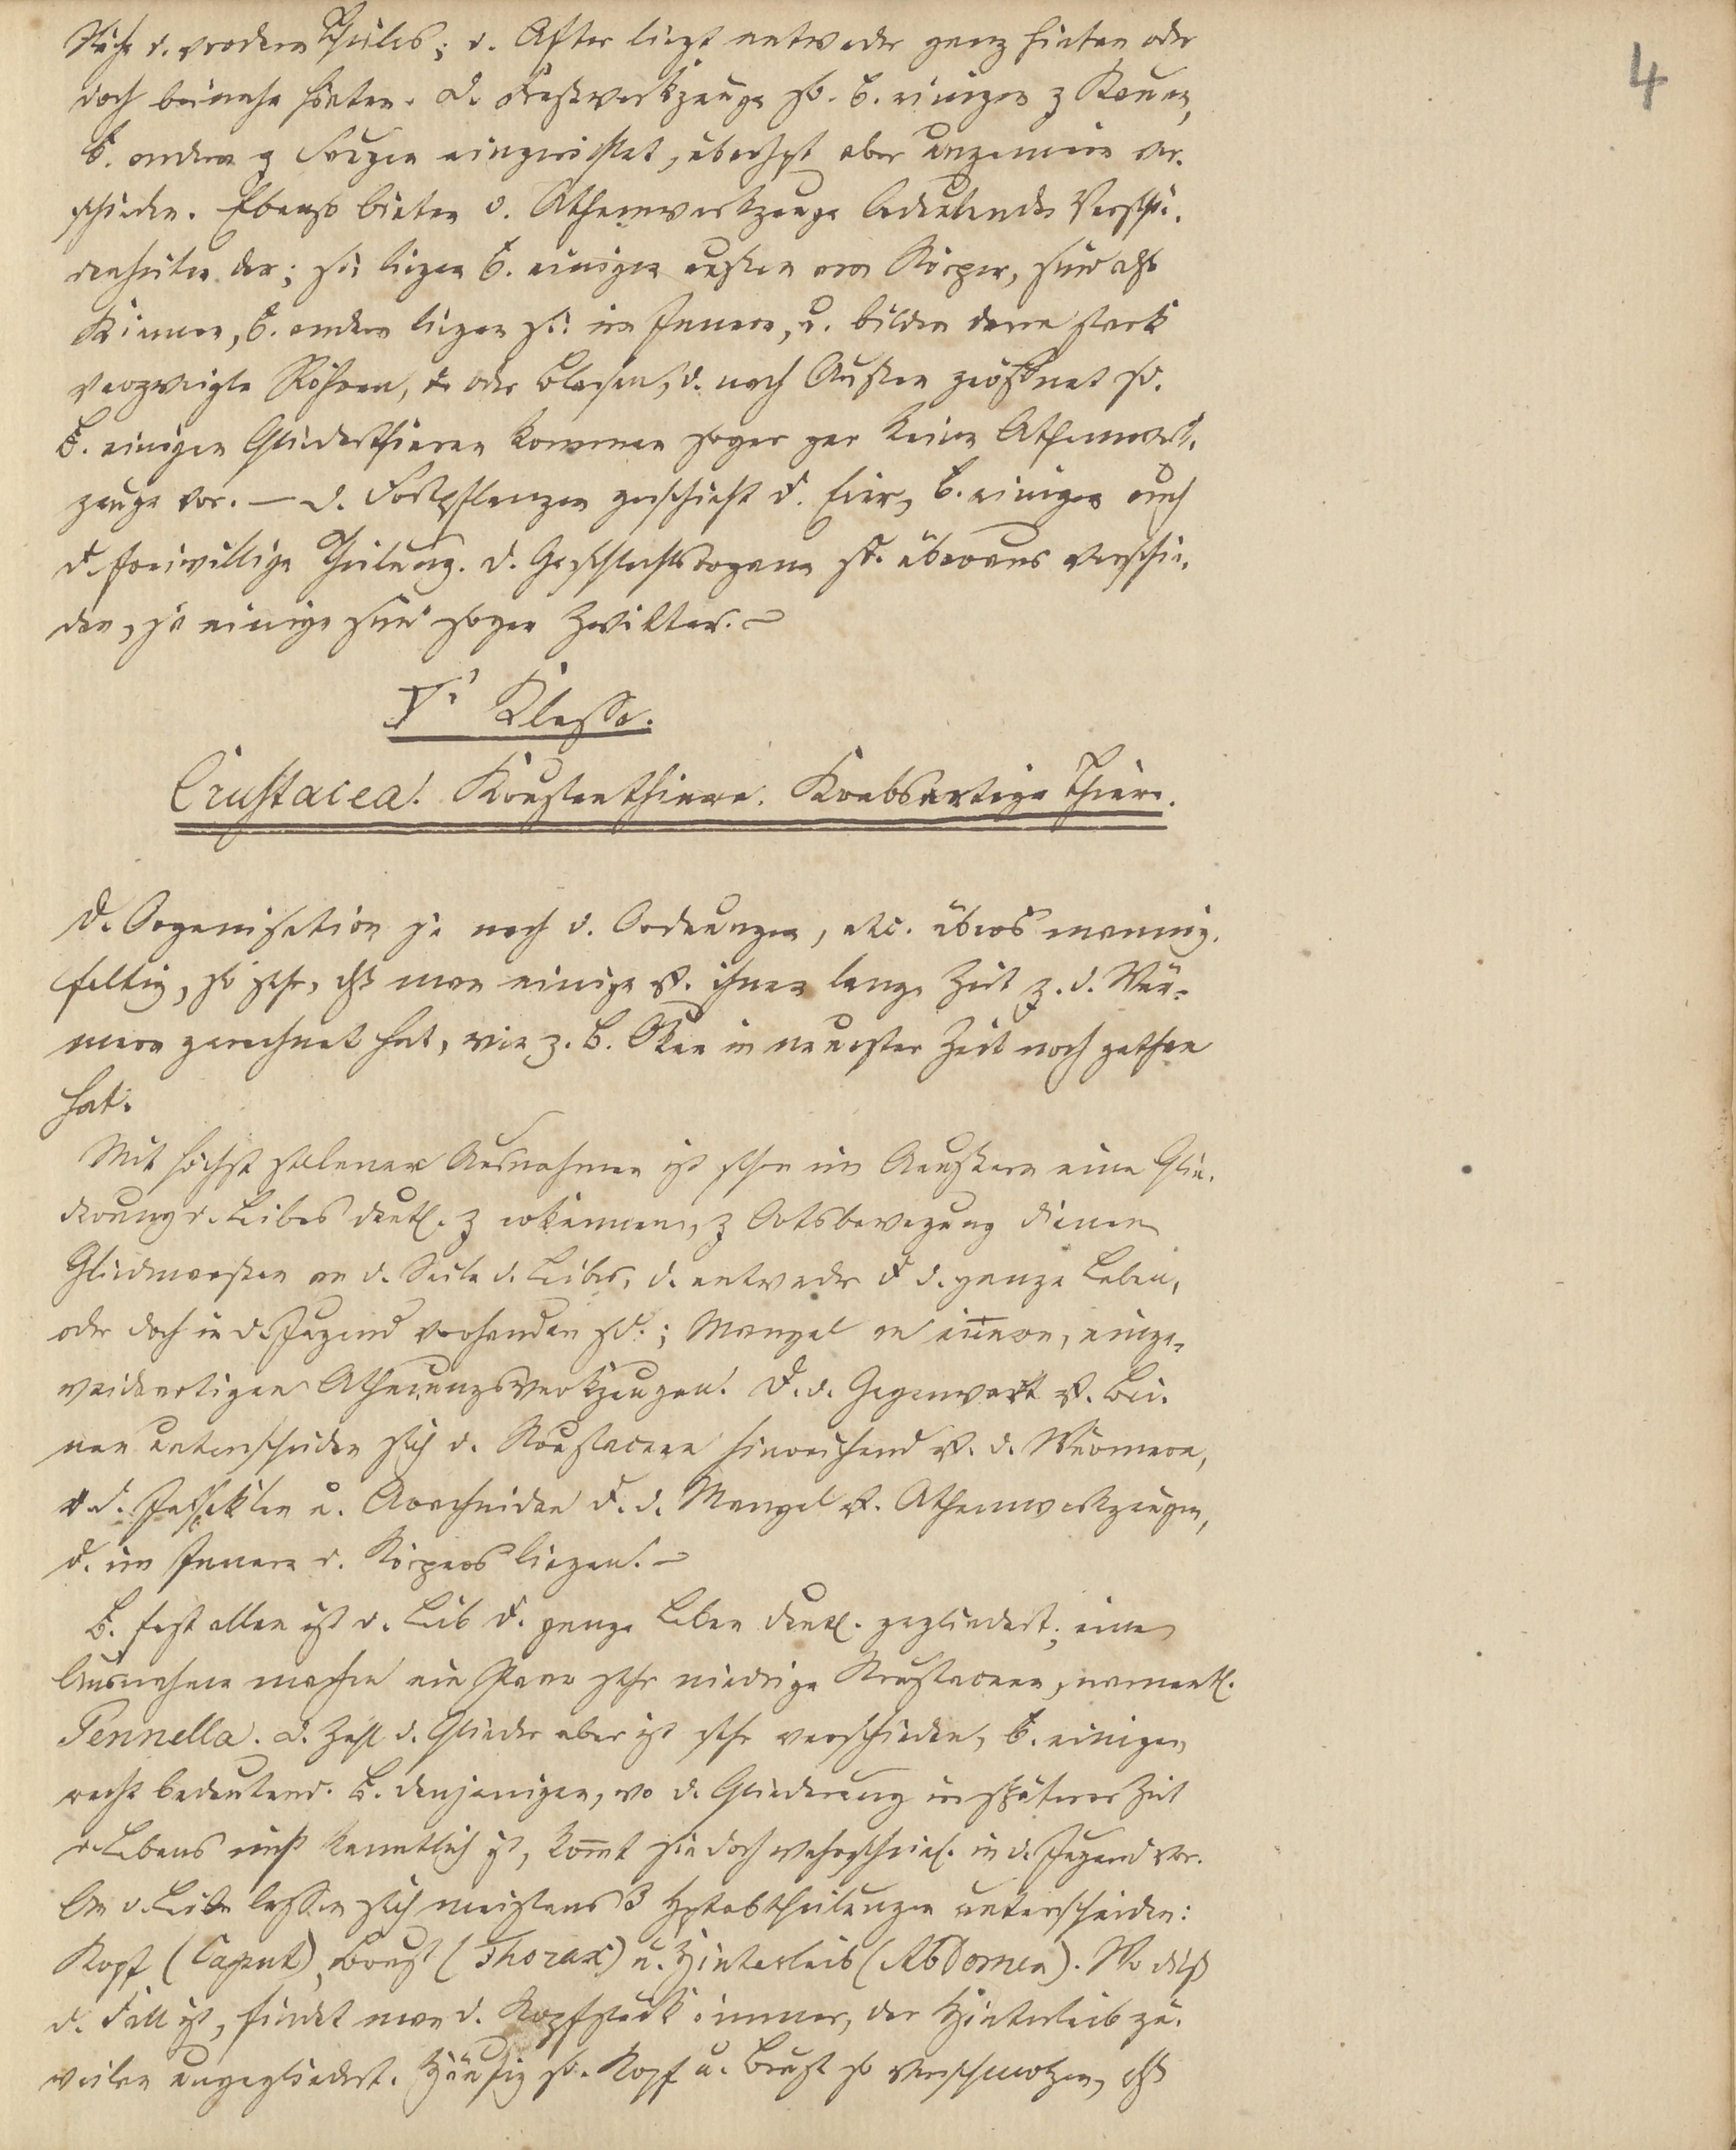 4
Nähe d. vordern Theiles; d. After liegt entweder ganz hinten oder
doch beinahe hinten. D. Fresswerkzeuge sd. b. einigen z Kauen,
b. andern z Saugen eingerichtet, überhpt aber ungemein ver-
schieden. Ebenso bieten d. Athemwerkzeuge bedeutende Verschie-
denheiten dar; sie liegen b. einigen aussen am Körper, sind also
Kiemen, b. andern liegen sie im Innern, u. bilden dann stark
verzweigte Röhren, oder Blasen, d. nach Aussen geöffnet sd.
B. einigen Gliederthieren kommen sogar gar keine Athemwerk-
zeuge vor. — D. Fortpflanzen geschieht d. Eier, b. einigen auch
d. freiwillige Theilung. D. Geschlechtsorgane sd. überaus verschie-
den, ja einige sind sogar Zwitter. –
I. Klasse.
Crustacea. Krustenthiere. Krebsartige Thiere.
D. Organisation je nach d. Ordnungen, etc. überaus mannig-
faltig, so sehr, dss man einige v. ihnen lange Zeit z. d. Wür-
mern gerechnet hat, wie z. B. Oken in neuester Zeit noch gethan
hat.
Mit höchst seltenen Ausnahmen ist schon im Aeussern eine Glie-
derung d. Leibes deutl. z erkennen, z Ortsbewegung dienen
Gliedmassen an d. Seite d. Leibes, d. entweder d. d. ganze Leben,
oder doch in d. Jugend vorhanden sd.; Mangel an innern, einge-
weideartigen Athmungswerkzeugen. D. d. Gegenwart v. Bei-
nen unterscheiden sich d. Krustaceen hinreichend v. d. Würmern,
v. d. Insekten u. Arachniden d. d. Mangel v. Athemwerkzeugen,
d. im Innern d. Körpers liegen. –
B. fast allen ist d. Leib d. ganze Leben deutl. gegliedert; eine
Ausnahme machen ein Paar sehr niedrige Krustaceen, namentl.
Pennella. D. Zahl d. Glieder aber ist sehr verschieden, b. einigen
recht bedeutend. B. denjenigen, wo d. Gliederung in späterer Zeit
d. Lebens nicht kenntlich ist, kommt sie doch wahrscheinl. in d. Jugend vor.
Am d. Leibe lassen sich meistens 3 Hptabtheilungen unterscheiden:
Kopf (Caput), Brust (Thorax) u. Hinterleib (Abdomen). Wo diess
d. Fall ist, findet man d. Kopfstück immer, den Hinterleib zu-
weilen ungegliedert. Häufig sd. Kopf u. Brust so verschmolzen, dss